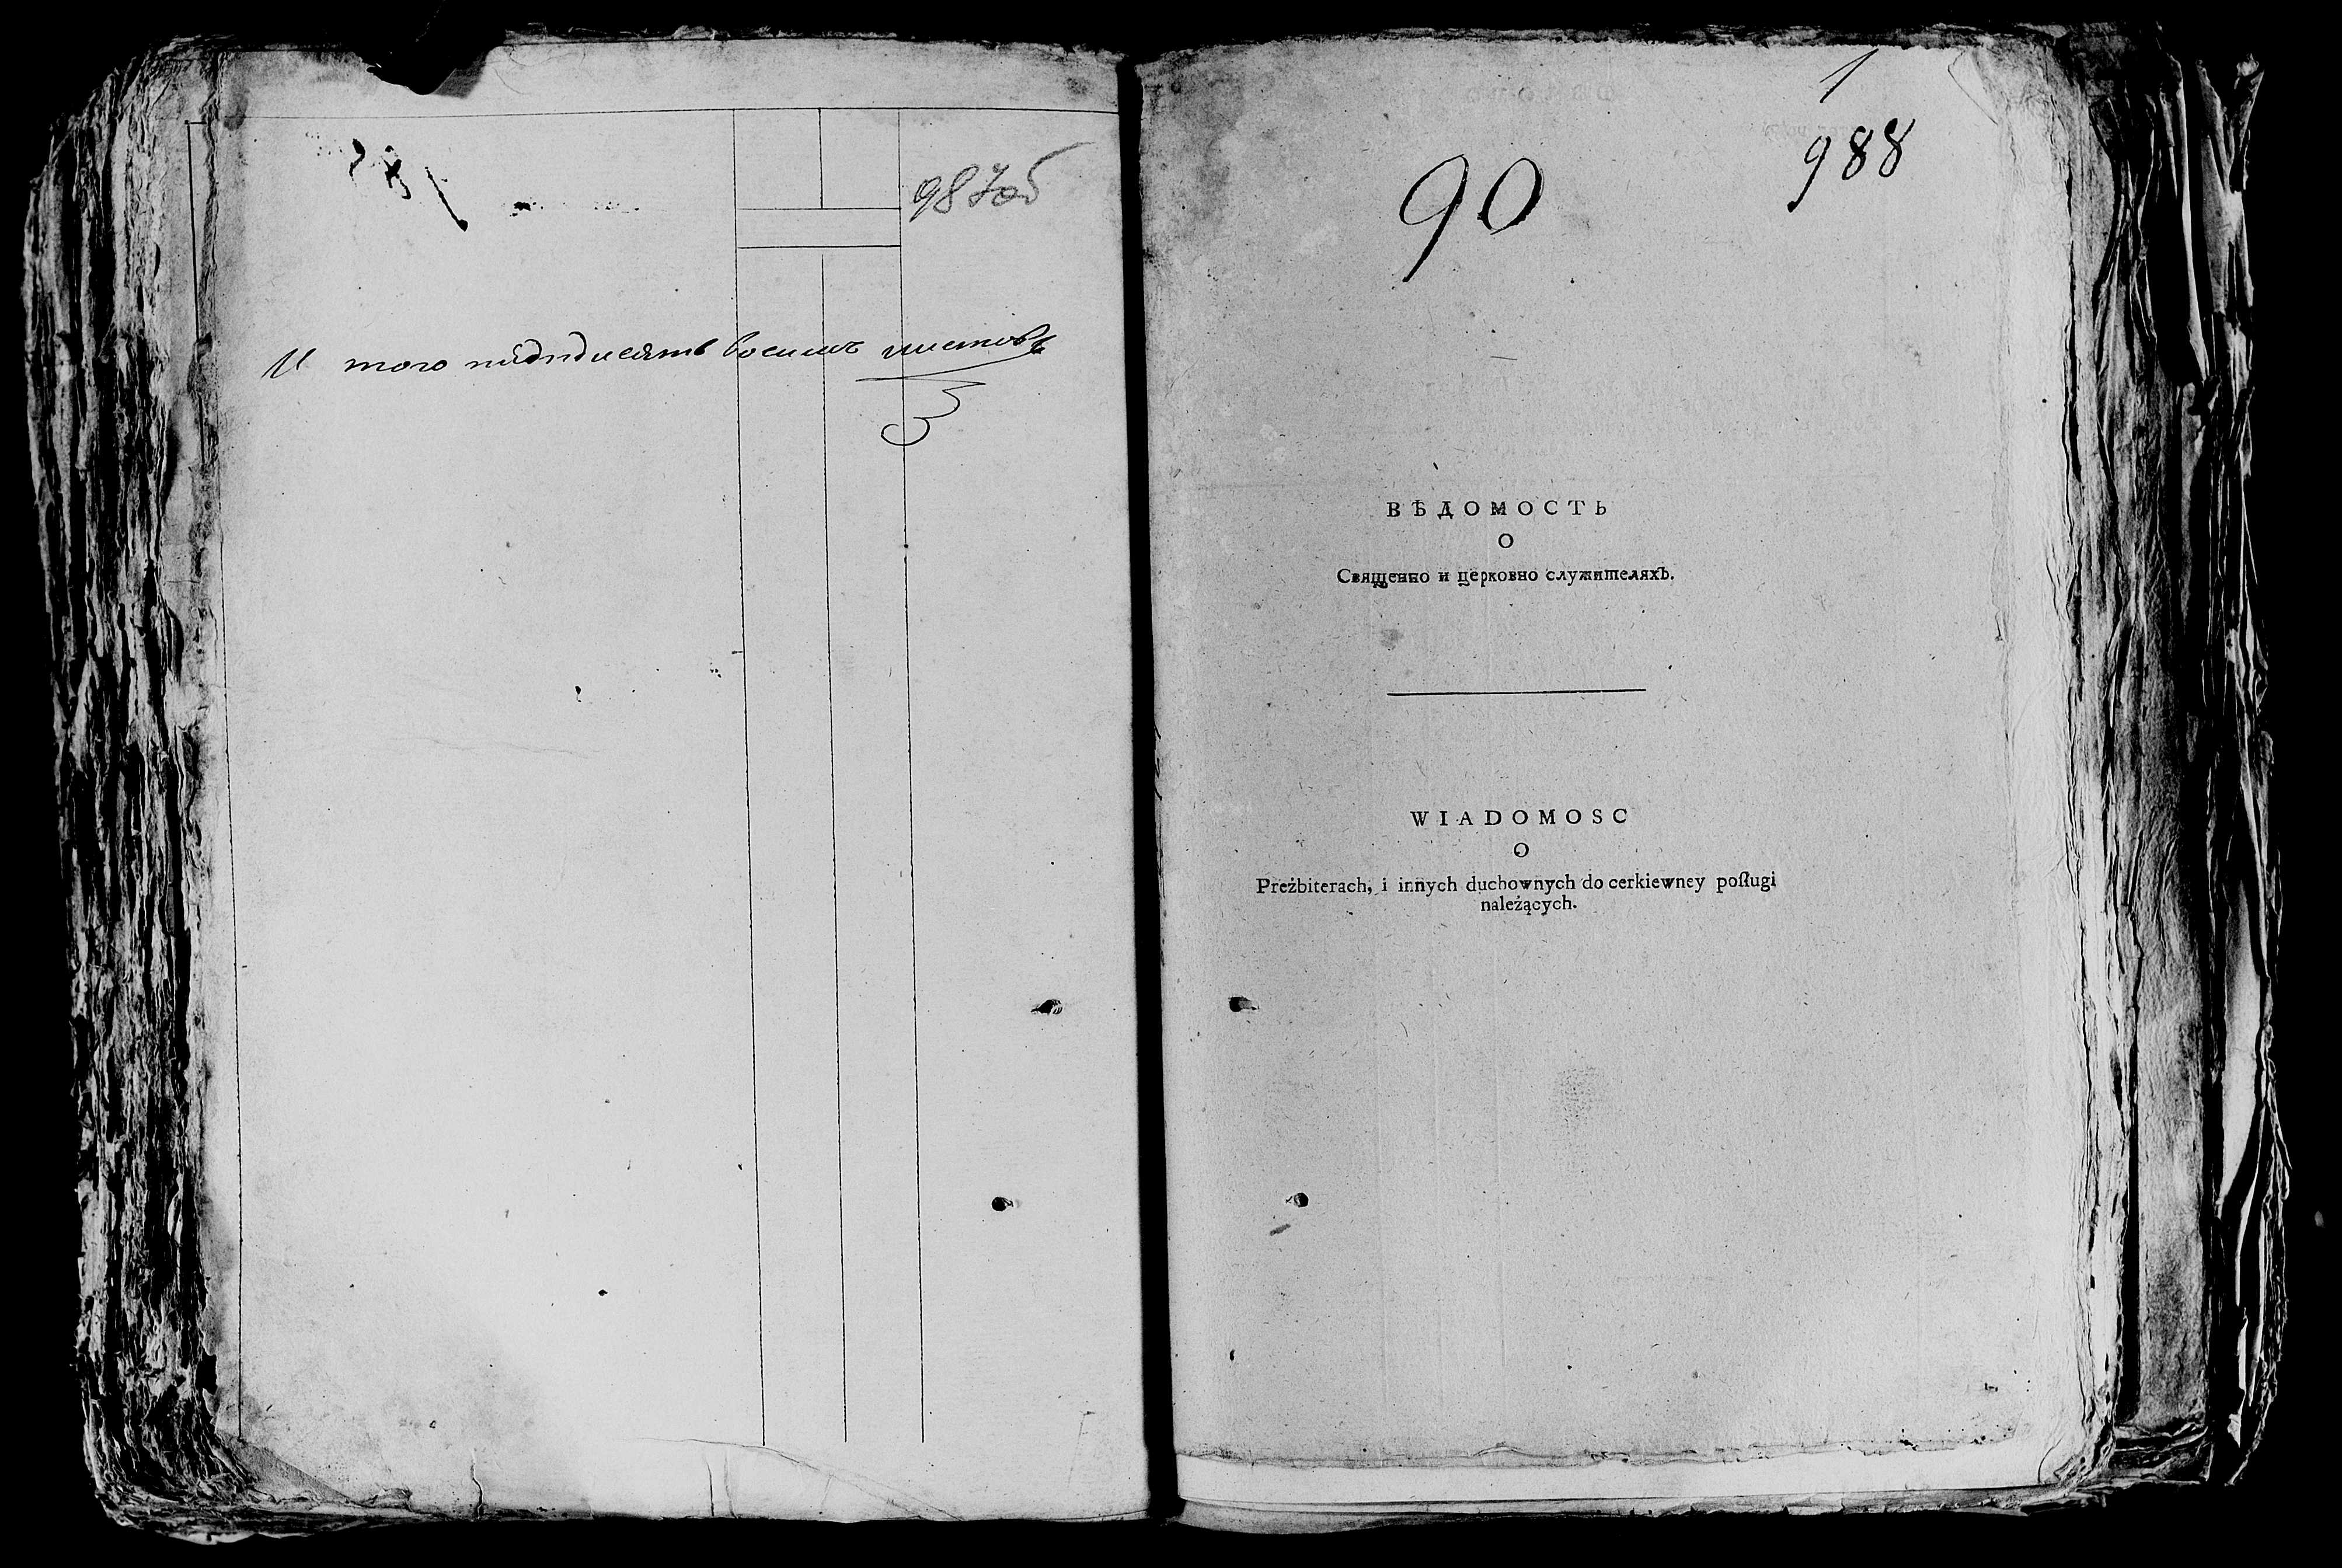 987об
И того пядидисятъ восимъ листовъ
1
988
90
ВѢДОМОСТЬ
О
Священно и церковно служителяхЪ.
WIADOMOSC
O
Preżbiterach, i innych duchownych do cerkiewney poſługi
należących.